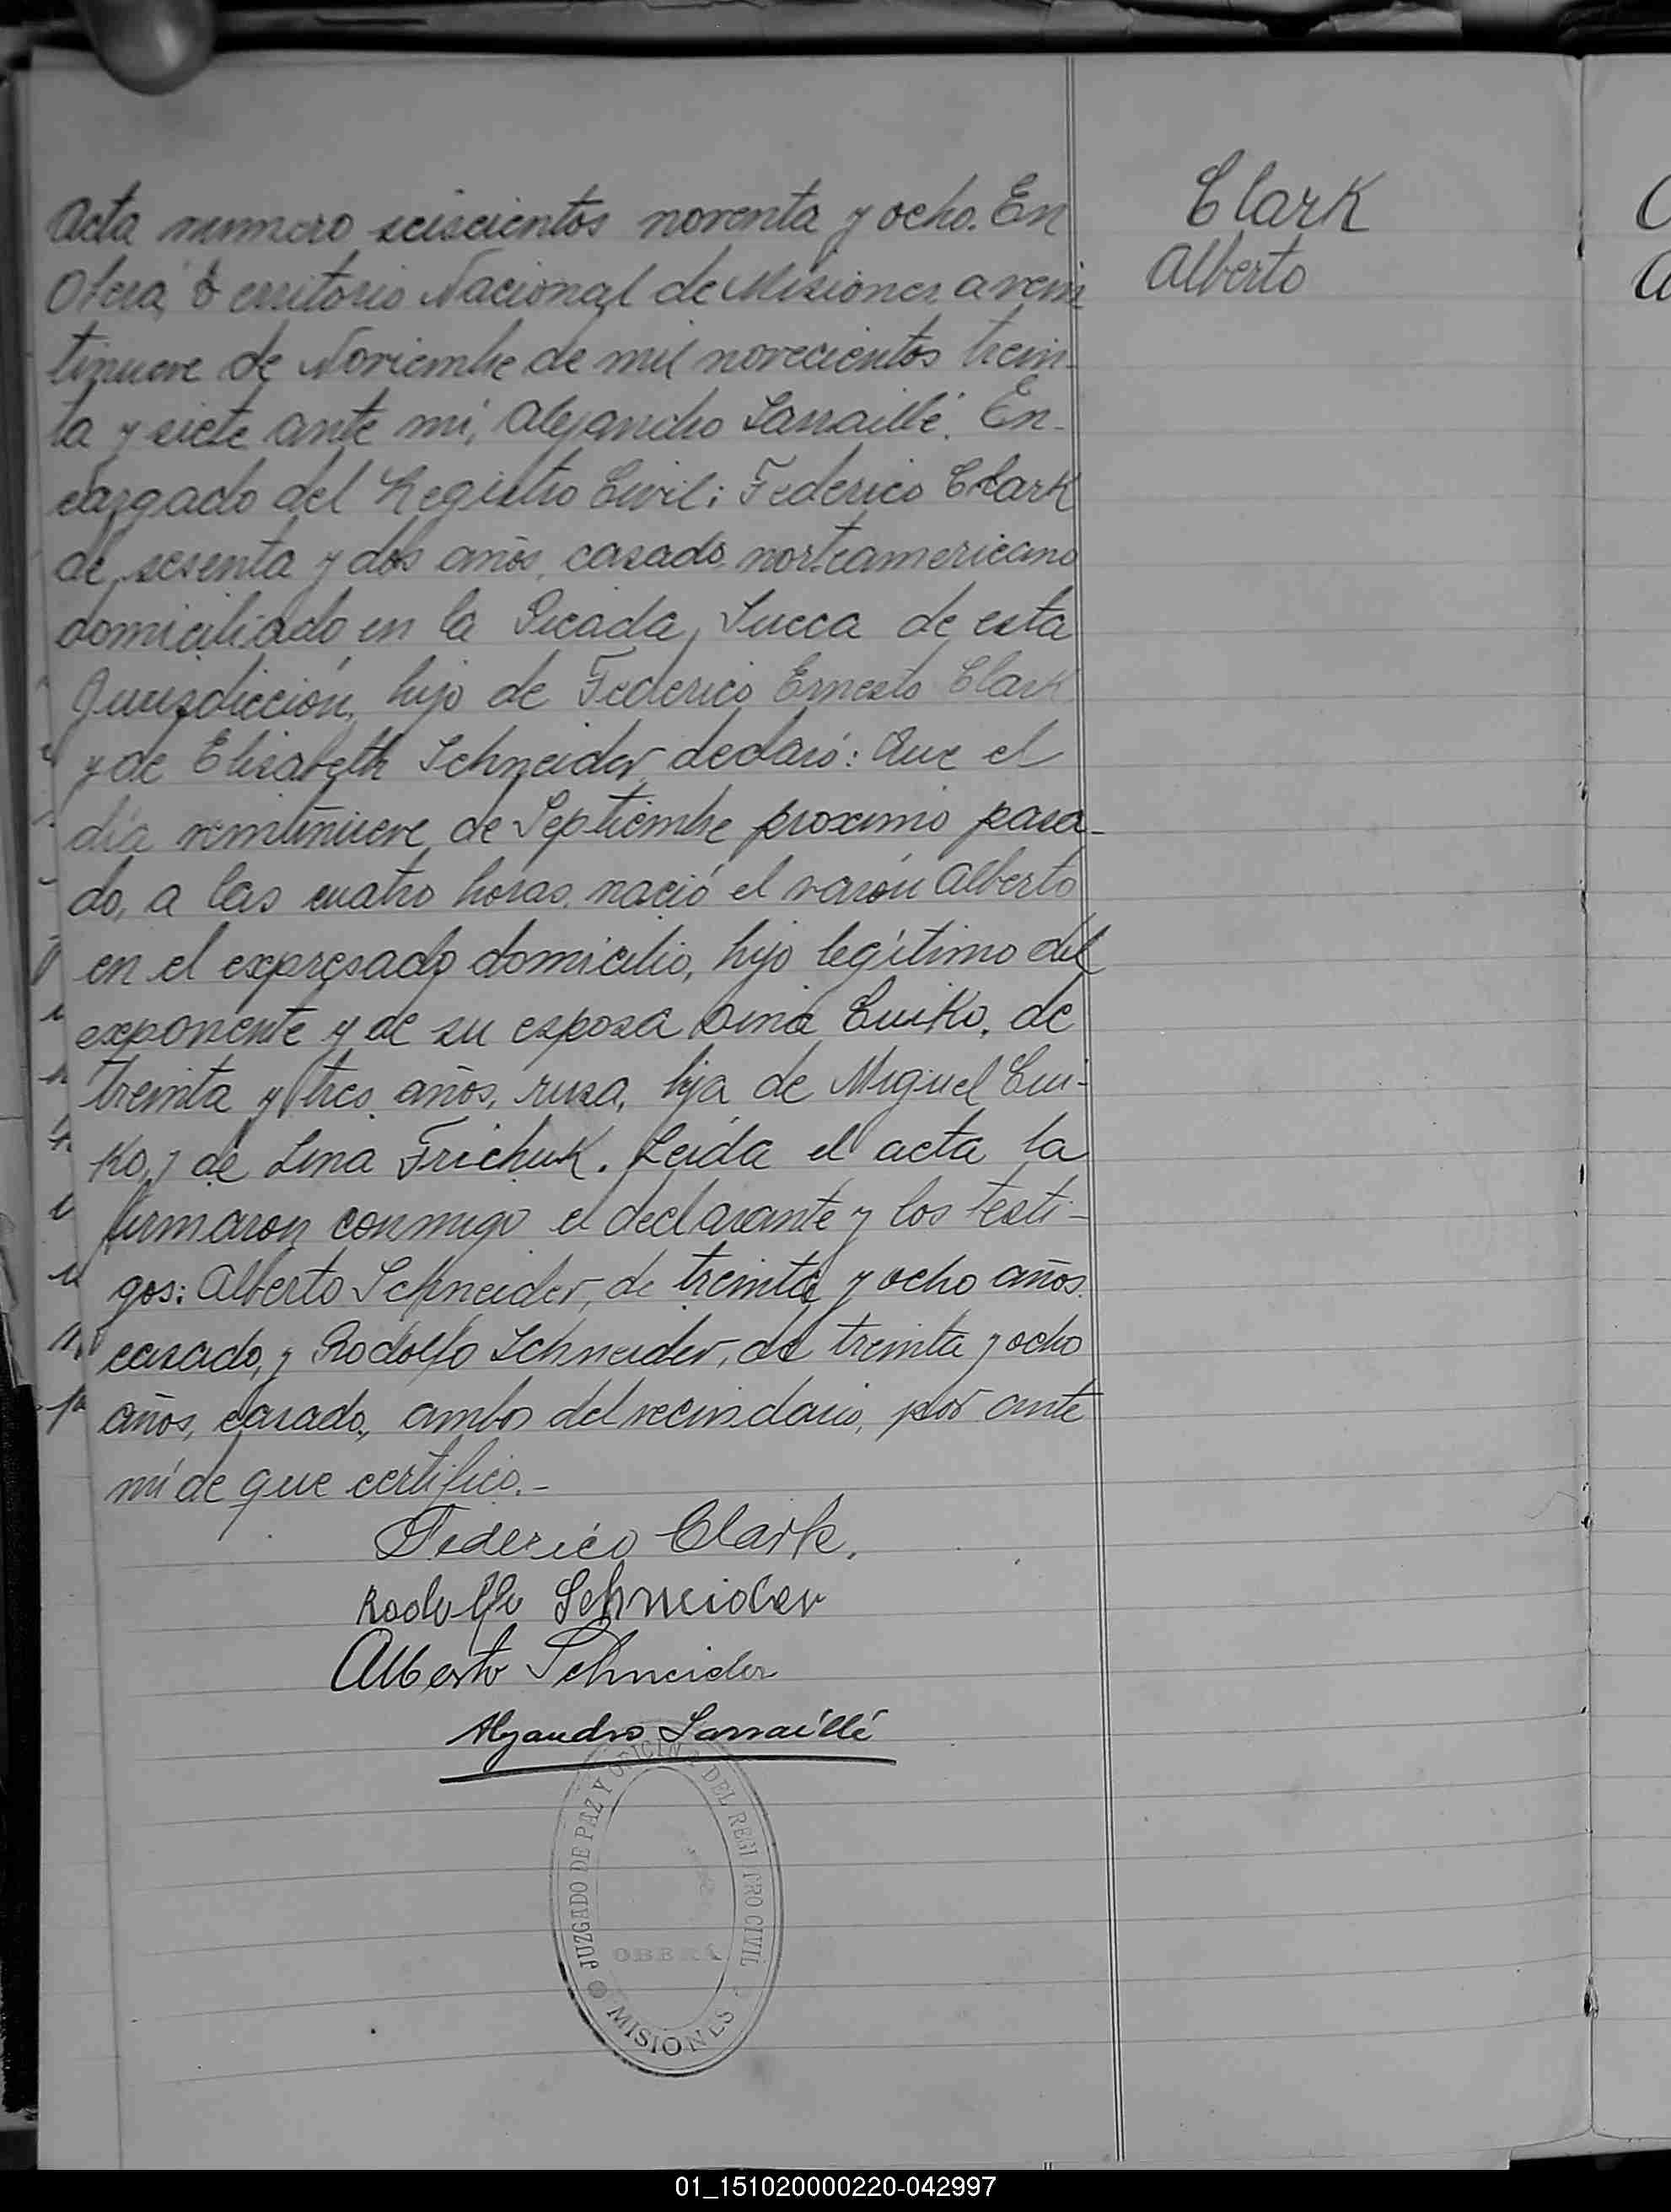 Acta numero seiscientos noventa y ocho. En
Oberá, Territorio Nacional de Misiones, a vein
tinueve de Noviembre de mil novecientos trein-
ta y siete ante mí, Alejandro Larraillé. En-
cargado del Registro Civil: Federico Clark
de sesenta y dos años, casado, norteamericano
domiciliado en la Picada Sueca de esta
Jurisdicción, hijo de Federico Ernesto Clark
y de Elisabeth Schneider, declaró: Que el
día veintinueve de Septiembre proximo pasa-
do, a las cuatro horas, nació el varón Alberto
en el expresado domicilio, hijo legítimo del
exponente y de su esposa Dina Cuiko, de
treinta y tres años, rusa, hija de Miguel Cui-
ko, y de Lina Frichuk. Leída el acta la
firmaron conmigo el declarante y los testi-
gos: Alberto Schneider, de treinta y ocho años.
casado, y Rodolfo Schneider, de treinta y ocho
años, casado, ambos del vecindario, por ante
mí de que certifico.-
Federico Clark.
Rodolfo Schneider
Alberto Schneider
Alejandro Larraillé
JUZGADO DE PAZ Y OFICINA DEL REGISTRO CIVIL
OBERÁ
MISIONES
Clark
Alberto
01_151020000220-042997